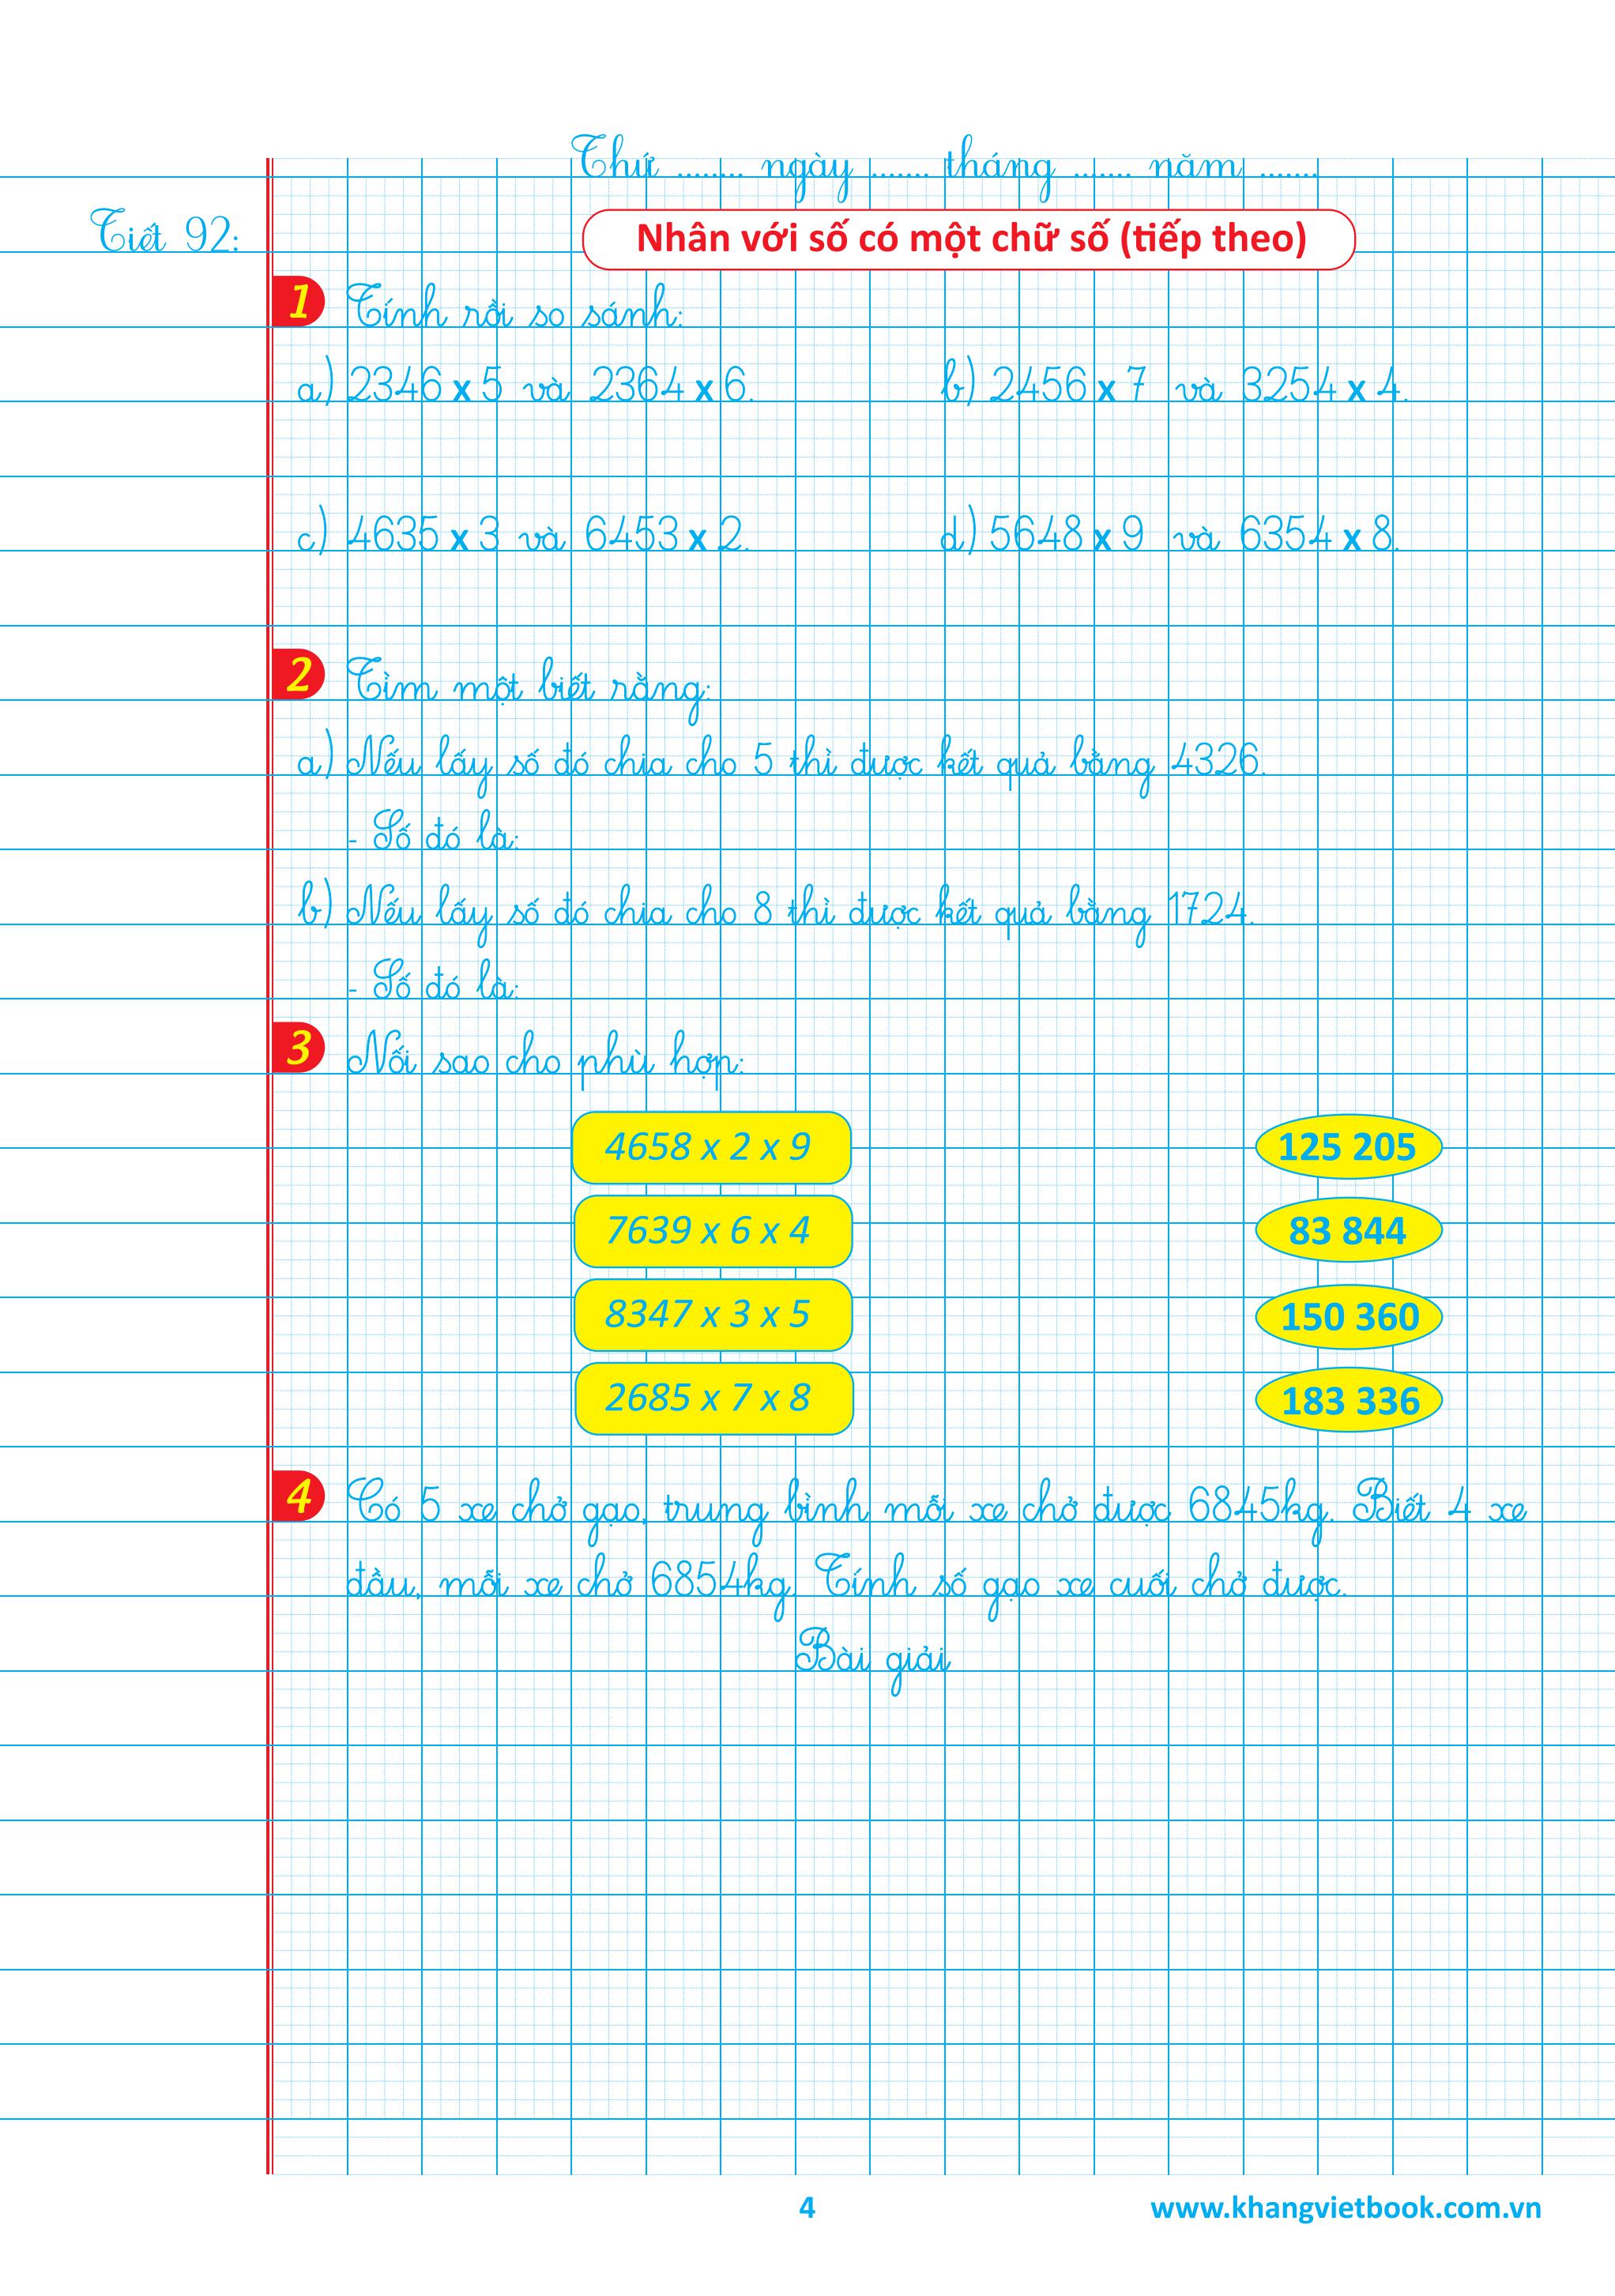 Thứ ........ ngày ....... tháng ....... năm .......
Tiết 92:
Nhân với số có một chữ số (tiếp theo)
1 Tính rồi so sánh:
a) 2346 x 5 và 2364 x 6. b) 2456 x 7 và 3254 x 4.
c) 4635 x 3 và 6453 x 2. d) 5648 x 9 và 6354 x 8.
2 Tìm một biết rằng:
a) Nếu lấy số đó chia cho 5 thì được kết quả bằng 4326.
- Số đó là:
b) Nếu lấy số đó chia cho 8 thì được kết quả bằng 1724.
- Số đó là:
3 Nối sao cho phù hợp:
4658 x 2 x 9 125 205
7639 x 6 x 4 83 844
8347 x 3 x 5 150 360
2685 x 7 x 8 183 336
4 Có 5 xe chở gạo, trung bình mỗi xe chở được 6845kg. Biết 4 xe
đầu, mỗi xe chở 6854kg. Tính số gạo xe cuối chở được.
Bài giải
4 www.khangvietbook.com.vn